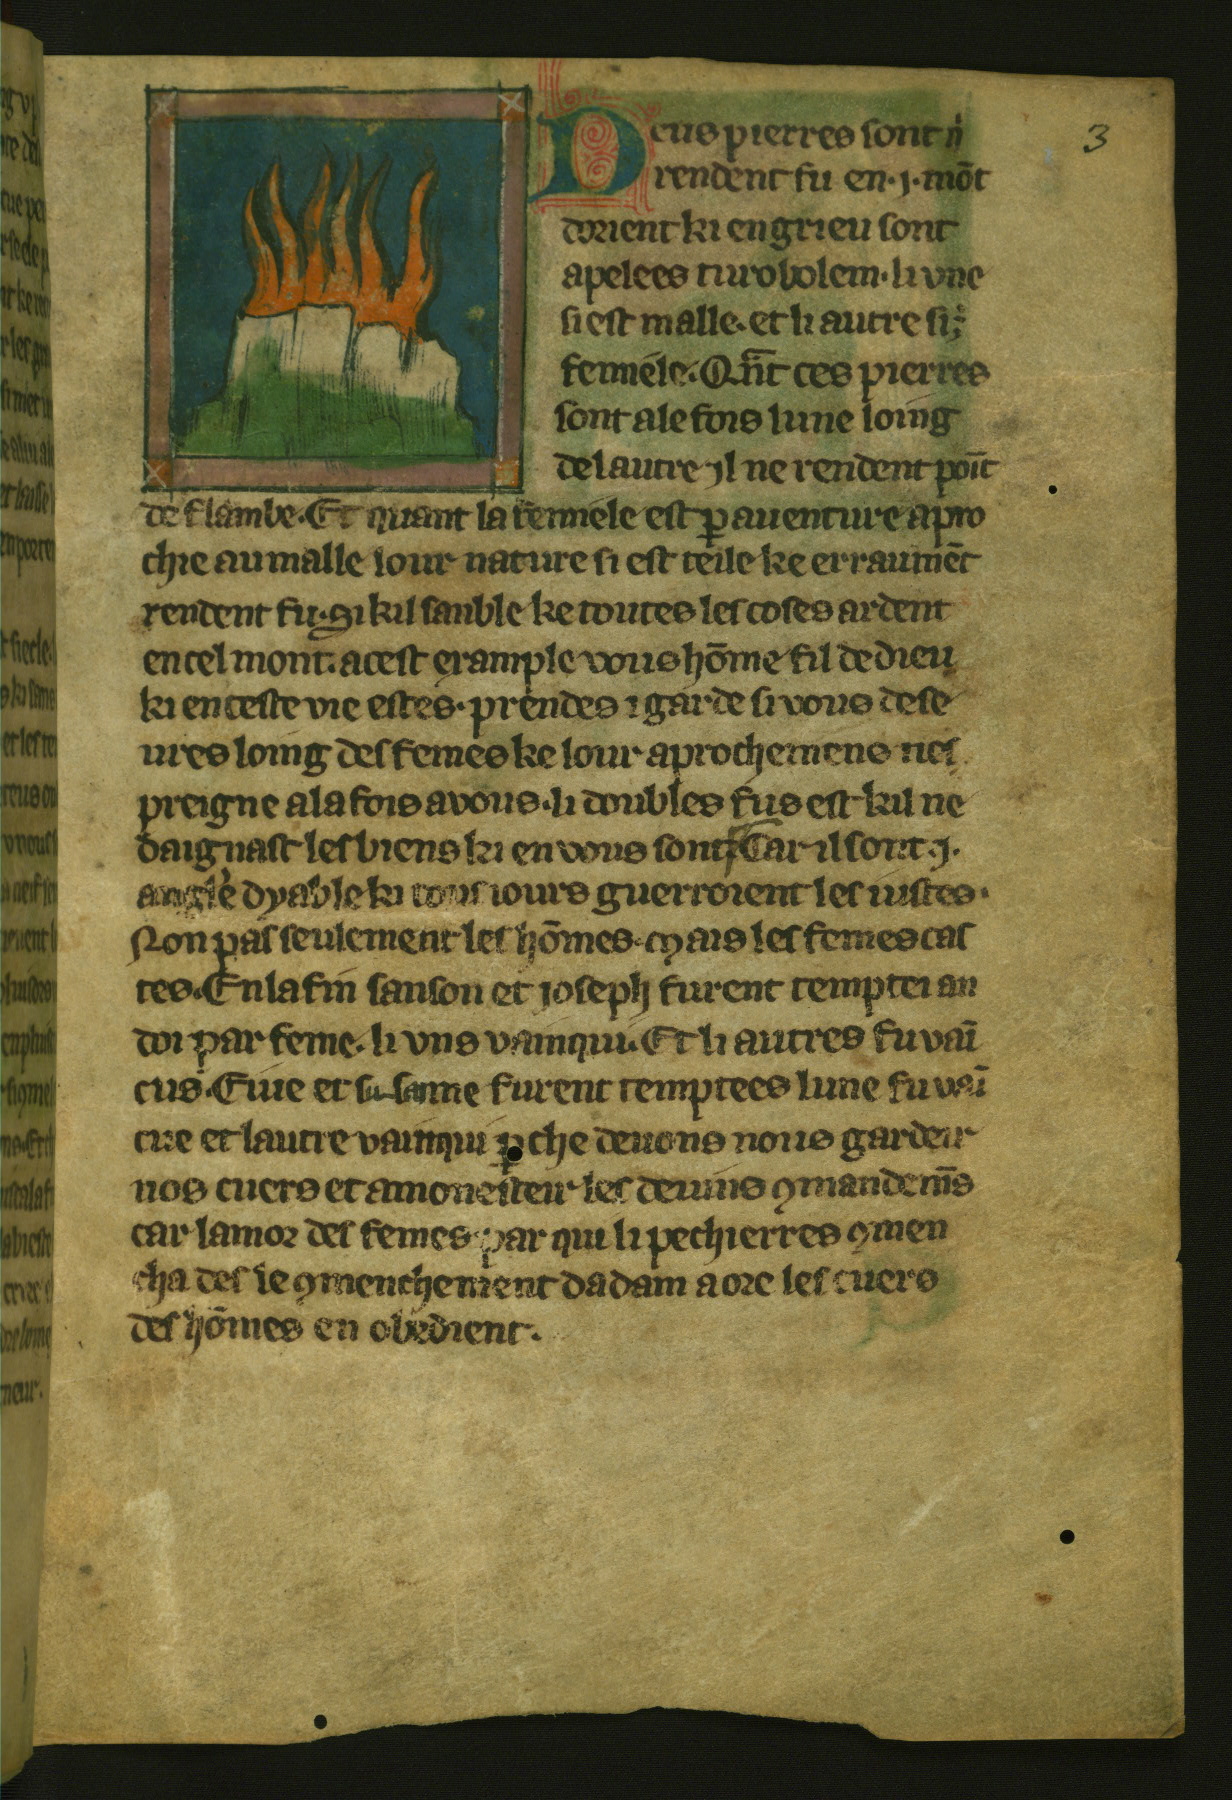 3
Deus pierres sont q̃i
rendent fu en .j. mõt
dorient ki en grieu sont
apelees turobolem. li vne
si est malle. et li autre si ÷
femiele. Qñt ces pierres
sont ale fois lune loing
de lautre jl ne rendent poīt
de flambe. Et quant la femiele est ꝑ auenture apro
chie au malle lour nature si est teile ke erraumēt
rendent fu. Si kil sanble ke toutes les coses ardent
en cel mont. a cest example vous hõme fil de dieu
ki en ceste vie estes. prendes ⁊ garde si vous dese
ures loing des femes ke lour aprochemens nes
preigne ala fois a vous. li doubles fus est kil ne
daignast les biens ki en vous sont. Car il sont .j.
angle dyable ki tous iours guerroient les iustes.
Non pas seulement les hõmes. Mais les femes cas
tes. En la fin sanson et joseph furent temptei an
doi par feme. li vns vainqui. Et li autres fu vaī
cus. Euie et susanne furent temptees lune fu vaī
cue et lautre vainqui ꝑ che deuons nous gardeir
nos cuers et amonesteir les deuins ꝯmandem̄s
car lamor des femes par qui li pechierres ꝯmen
cha des le ꝯmenchement dadam a ore les cuers
des hõmes en obedient.